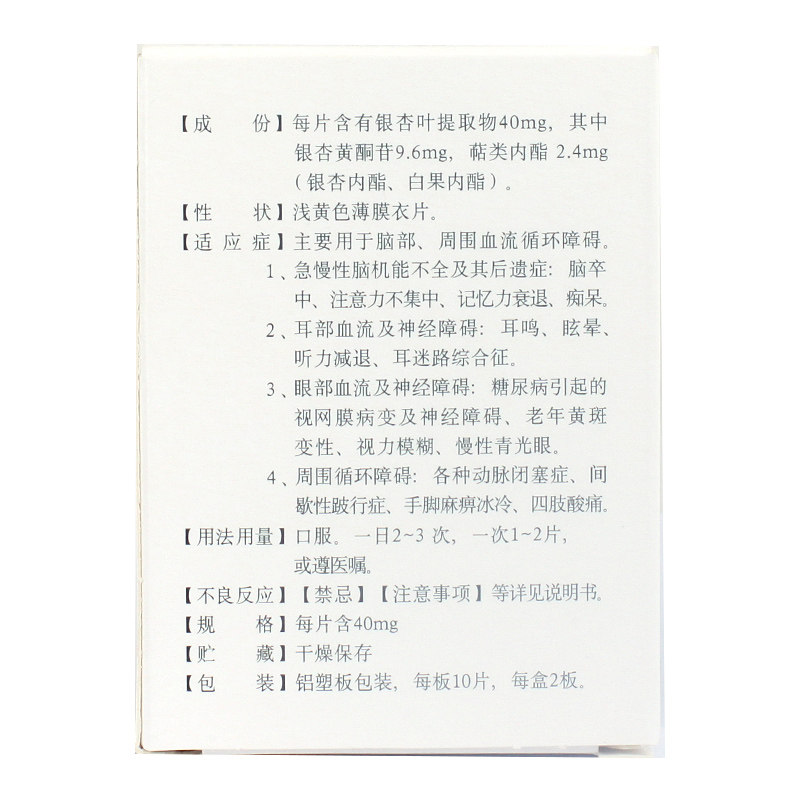 【成份】每片含有银杏叶提取物40mg，其中
银杏黄酮苷9.6mg，萜类内酯 2.4mg
（银杏内酯、白果内酯）。
【性状】浅黄色薄膜衣片。
【适应症】主要用于脑部、周围血流循环障碍。
1、急慢性脑机能不全及其后遗症：脑卒
中、注意力不集中、记忆力衰退、痴呆。
2、耳部血流及神经障碍：耳鸣、眩晕、
听力减退、耳迷路综合征。
3、眼部血流及神经障碍：糖尿病引起的
视网膜病变及神经障碍、老年黄斑
变性、视力模糊、慢性青光眼。
4、周围循环障碍：各种动脉闭塞症、间
歇性跛行症、手脚麻痹冰冷、四肢酸痛。
【用法用量】口服。一日2~3 次，一次1~2片，
或遵医嘱。
【不良反应】【禁忌】【注意事项】等详见说明书。
【规格】每片含40mg
【贮藏】干燥保存
【包装】铝塑板包装，每板10片，每盒2板。